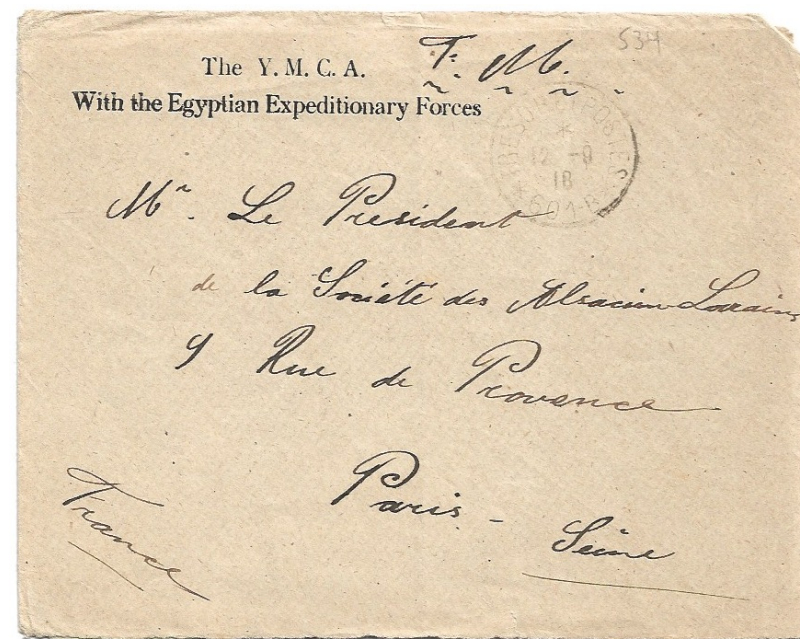 534
The Y. M. C. A.
F. M.
With the Egyptian Expeditionary Forces
TRESOR ET POSTES
* 12 -8
18
* 601 *
Mr. Le President
de la Société des Alsaciens-Lorrains
9 Rue de Provence
Paris - Seine
France